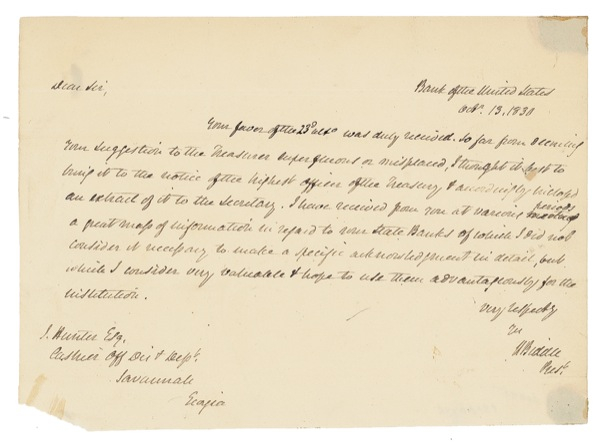 Bank of the United States
Octr. 13, 1830
Dear Sir,
Your favor of the 23d ulto was duly received. So far from deeming
your suggestion to the Treasurer superfluous or misplaced, I thought it best to
bring it to the notice of the highest officer of the Treasury & accordingly inclosed
an extract of it to the Secretary. I have received from you at various periods
a great mass of information in regard to your State Banks of which I did not
consider it necessary to make a specific acknowledgment in detail, but
which I consider very valuable & hope to use them advantageously for the
institution.
Very respecty
Yrs
N Biddle
Prest.
J. Hunter Esq.
Cashier Off Dis & Dept.
Savannah
Georgia